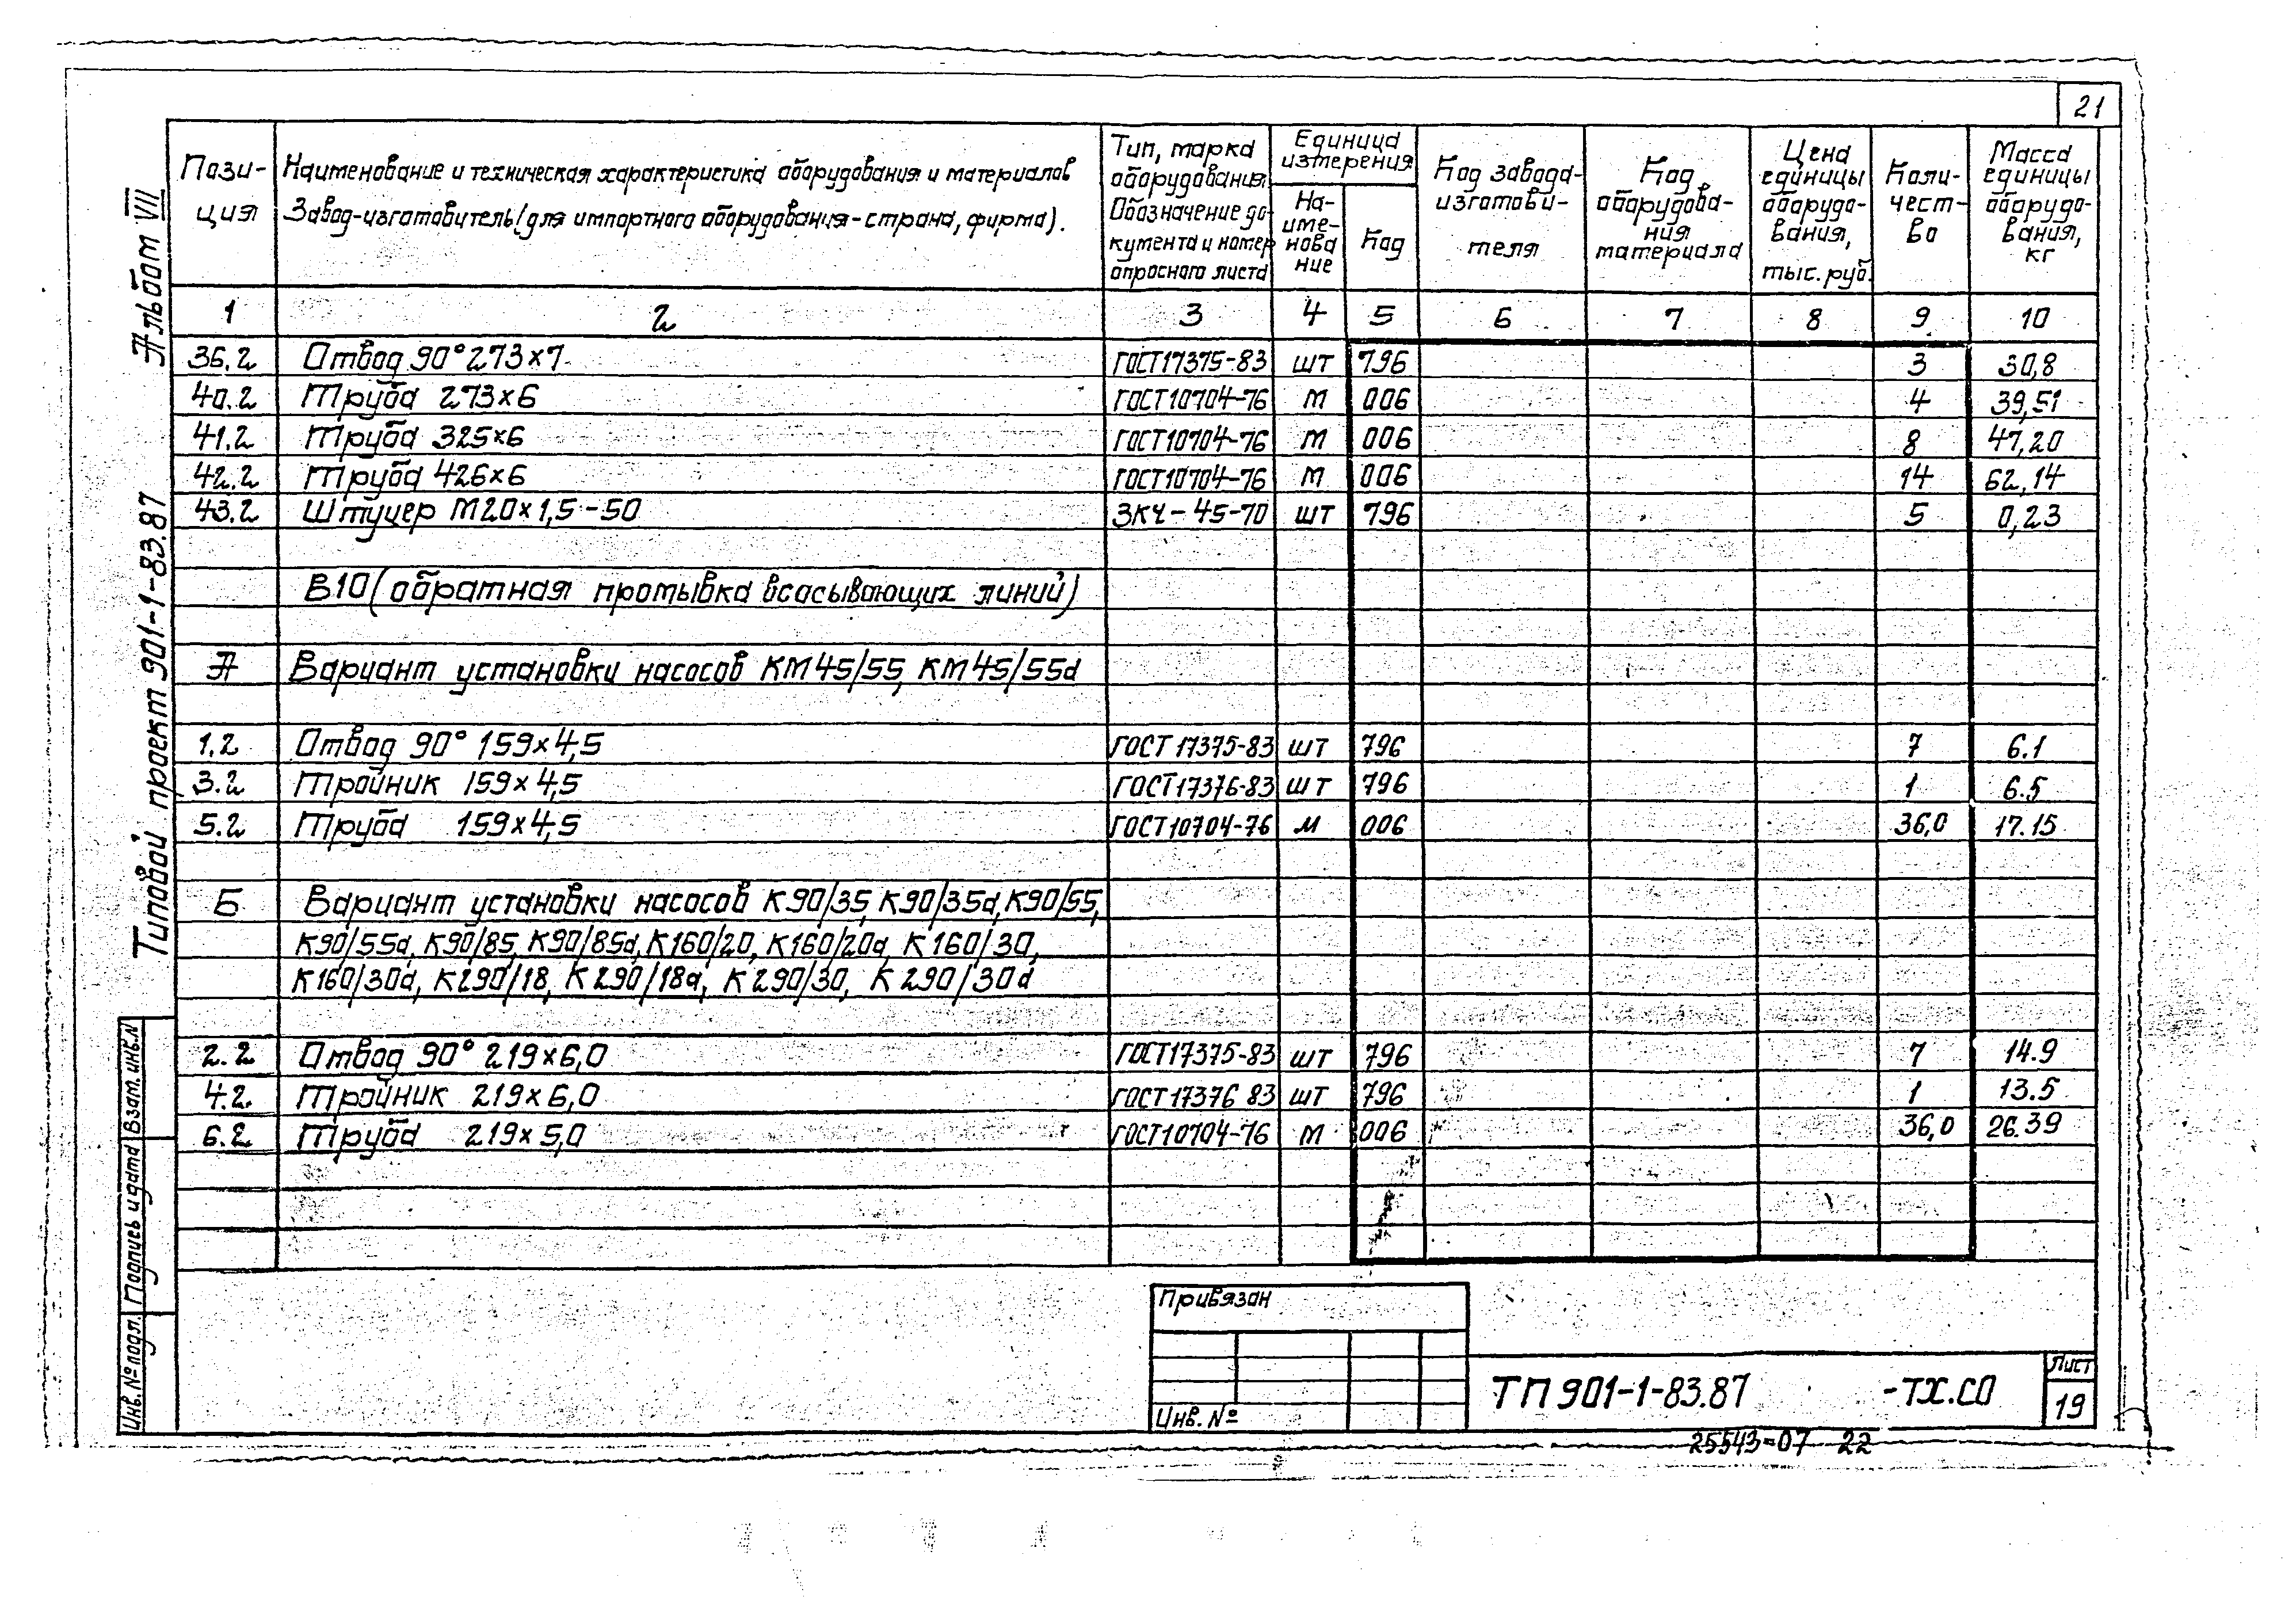 21
Альбом VII
Типовой проект 901-1-83.87
Пози-
ция
Наименование и техническая характеристика оборудования и материалов
Завод-изготовитель (для импортного оборудования - страна, фирма).
Тип, марка
оборудования.
Обозначение до-
кумента и номер
опросного листа
Единица
измерения
На-
име-
нова
ние
Код
Код завода-
изготови-
теля
Код
оборудова-
ния
материала
Цена
единицы
оборудо-
вания,
тыс. руб.
Коли-
чест-
во
Масса
единицы
оборудо-
вания,
кг
1 2 3 4 5 6 7 8 9 10
36.2 Отвод 90° 273×7 ГОСТ 17375-83 шт 796 3 30,8
40.2 Труба 273×6 ГОСТ 10704-76 м 006 4 39,51
41.2 Труба 325×6 ГОСТ 10704-76 м 006 8 47,20
42.2 Труба 426×6 ГОСТ 10704-76 м 006 14 62,14
43.2 Штуцер М20×1,5-50 ЗКЧ-45-70 шт 796 5 0,23
В10 (обратная промывка всасывающих линий)
А Вариант установки насосов КМ 45/55, КМ 45/55а
1.2 Отвод 90° 159×4,5 ГОСТ 17375-83 шт 796 7 6.1
3.2 Тройник 159×4,5 ГОСТ 17376-83 шт 796 1 6.5
5.2 Труба 159×4,5 ГОСТ 10704-76 м 006 36,0 17.15
Б Вариант установки насосов К90/35, К90/35а, К90/55,
К90/55а, К90/85, К90/85а, К160/20, К160/20а, К160/30,
К160/30а, К290/18, К290/18а, К290/30, К290/30а
2.2 Отвод 90° 219×6,0 ГОСТ 17375-83 шт 796 7 14.9
4.2. Тройник 219×6,0 ГОСТ 17376 83 шт 796 1 13.5
6.2 Труба 219×5,0 ГОСТ 10704-76 м 006 36,0 26.39
Взам. инв. №
Подпись и дата
Инв. № подл.
Привязан
Инв. №
ТП 901-1-83.87 -ТХ.СО
Лист
19
25543-07 22